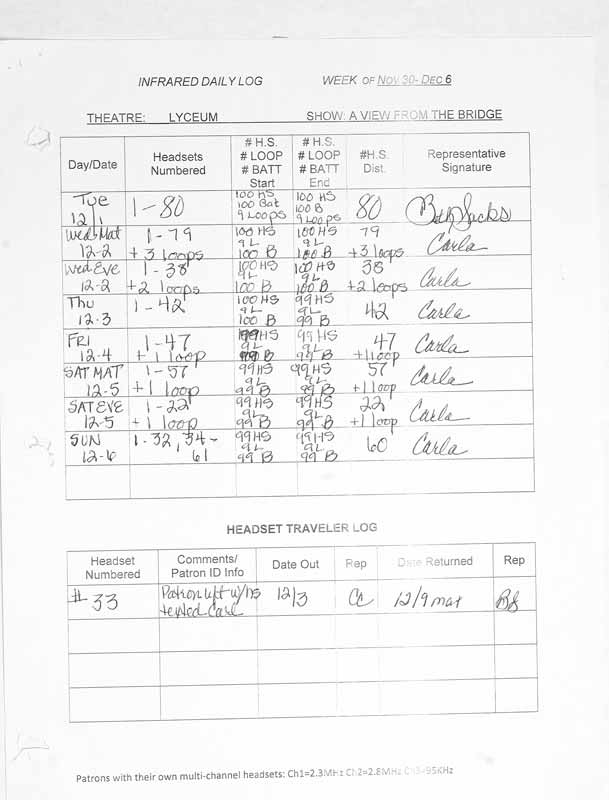 INFRARED DAILY LOG WEEK OF NOV 30- DEC 6
THEATRE: LYCEUM SHOW: A VIEW FROM THE BRIDGE
Day/Date Headsets Numbered # H.S. # LOOP # BATT Start # H.S. # LOOP # BATT End #H.S. Dist. Representative Signature
Tue 12/1 1-80 100 HS 100 Bat 9 Loops 100 HS 100 B 9 Loops 80 Beth Sacks
Wed Mat 12-2 1-79 +3 loops 100 HS 9L 100 B 100 HS 9L 100 B 79 +3 loops Carla
Wed Eve 12-2 1-38 +2 loops 100 HS 9L 100 B 100 HS 9L 100 B 38 +2 loops Carla
Thu 12-3 1-42 100 HS 9L 100 B 99 HS 9L 99 B 42 Carla
FRI 12-4 1-47 +1 loop 99 HS 9L 99 B 99 HS 9L 99 B 47 +1 loop Carla
SAT MAT 12-5 1-57 +1 loop 99 HS 9L 99 B 99 HS 9L 99 B 57 +1 loop Carla
SAT EVE 12-5 1-22 +1 loop 99 HS 9L 99 B 99 HS 9L 99 B 22 +1 loop Carla
SUN 12-6 1-32, 34-61 99 HS 9L 99 B 99 HS 9L 99 B 60 Carla
HEADSET TRAVELER LOG
Headset Numbered Comments/ Patron ID Info Date Out Rep Date Returned Rep
# 33 Patron left w/HS 12/3 CC 12/9 mat BS
Patrons with their own multi-channel headsets: Ch1=2.3MHz Ch2=2.8MHz Ch3=95KHz